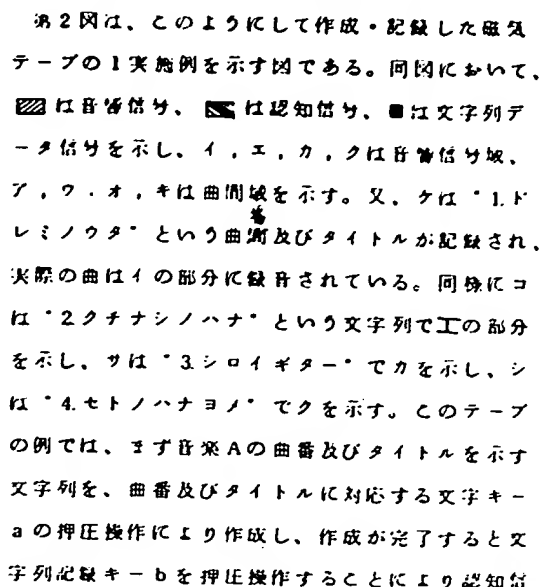 第2図は、このようにして作成・記録した磁気
テープの1実施例を示す図である。同図において、
▨は音響信号、◩は認知信号、■は文字列デ
ータ信号を示し、イ,エ,カ,クは音響信号域、
ア,ウ.オ,キは曲間域を示す。又、ケは“1.ド
レミノウタ”という曲番及びタイトルが記録され、
実際の曲はイの部分に録音されている。同様にコ
は“2クチナシノハナ”という文字列でエの部分
を示し、サは“3.シロイギター”でカを示し、シ
は“4.セトノハナヨメ”でクを示す。このテープ
の例では、まず音楽Aの曲番及びタイトルを示す
文字列を、曲番及びタイトルに対応する文字キー
aの押圧操作により作成し、作成が完了すると文
字列記録キーbを押圧操作することにより認知信